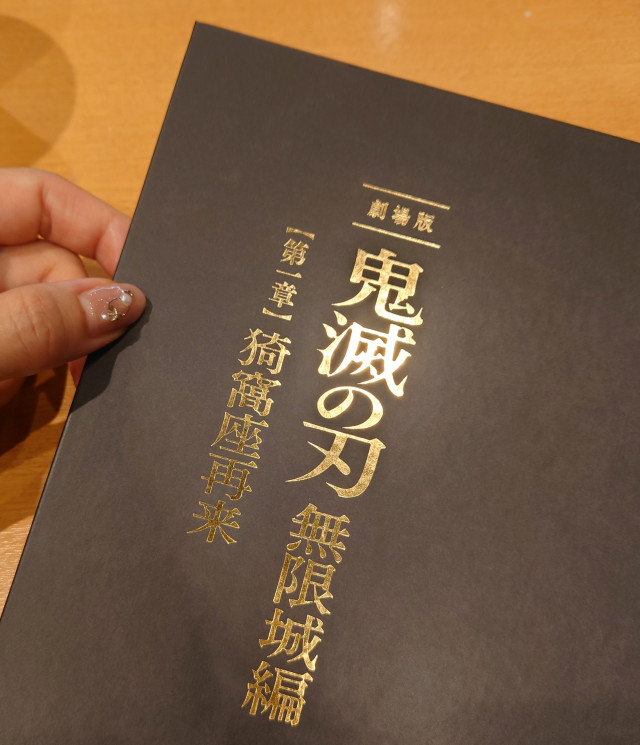 劇場版
鬼滅の刃 無限城編
【第一章】猗窩座再来